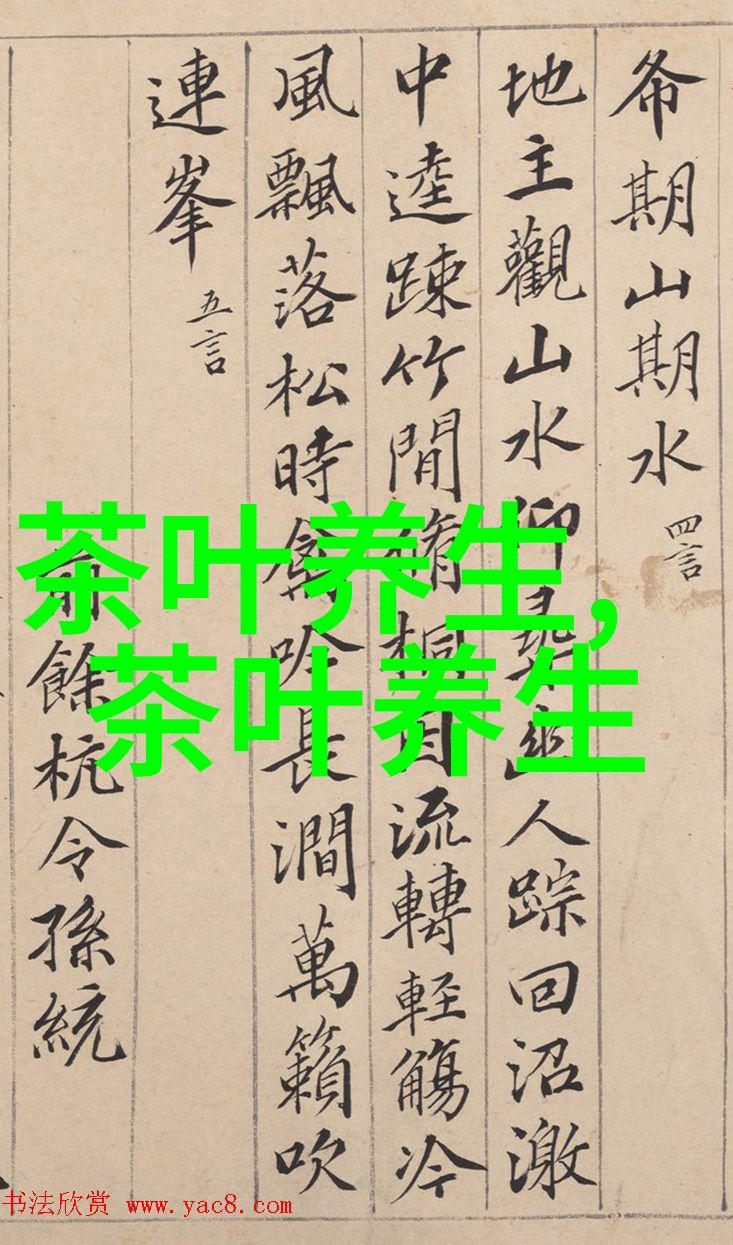 希期山期水 四言
地主觀山水仰尋幽人踪回沼激
中逵踈竹間脩桐因流轉輕觴冷
風飄落松時禽吟長澗萬籟吹
連峯 五言
前餘杭令孫統
茶叶养生,
茶叶养生
书法欣赏 www.yac8.com